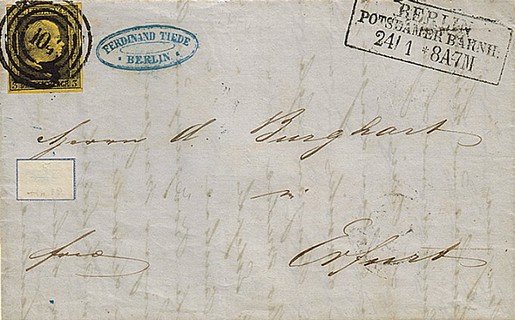 FERDINAND TIEDE
BERLIN
BERLIN
POTSDAMER BAHNH.
24/ 1 *8A-7M
Herrn A. Burghart
in
Erfurt